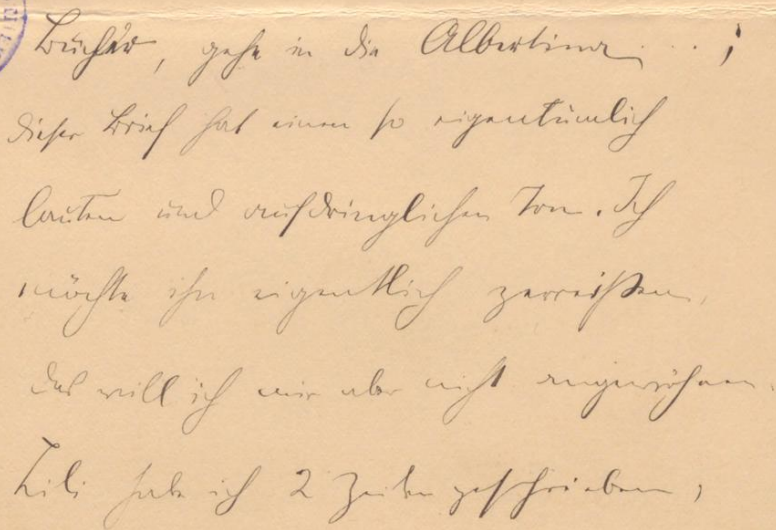 Bücher, gehe in die Albertina...;
dieser Brief hat einen so eigentümlich
lauten und aufdringlichen Ton. Ich
möchte ihn eigentlich zerreißen,
das will ich mir aber nicht angewöhnen.
Lili habe ich 2 Zeilen geschrieben,